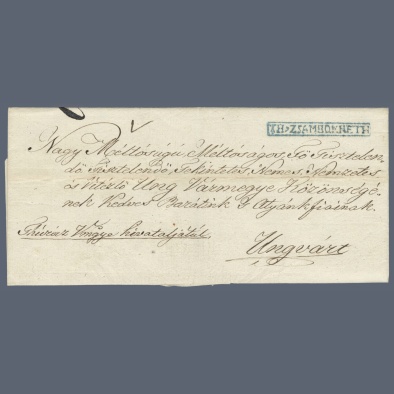 TH:ZSAMBOKRETH
Nagy Méltóságú, Méltóságos, Fő Tisztelen-
dő, Tisztelendő, Tekintetes, Nemes, Nemzetes,
és Vitézlő Ung Vármegye Közönségé-
nek Kedves Barátink s Atyánkfiainak.
Vmgye hivataljától
Ungvárt